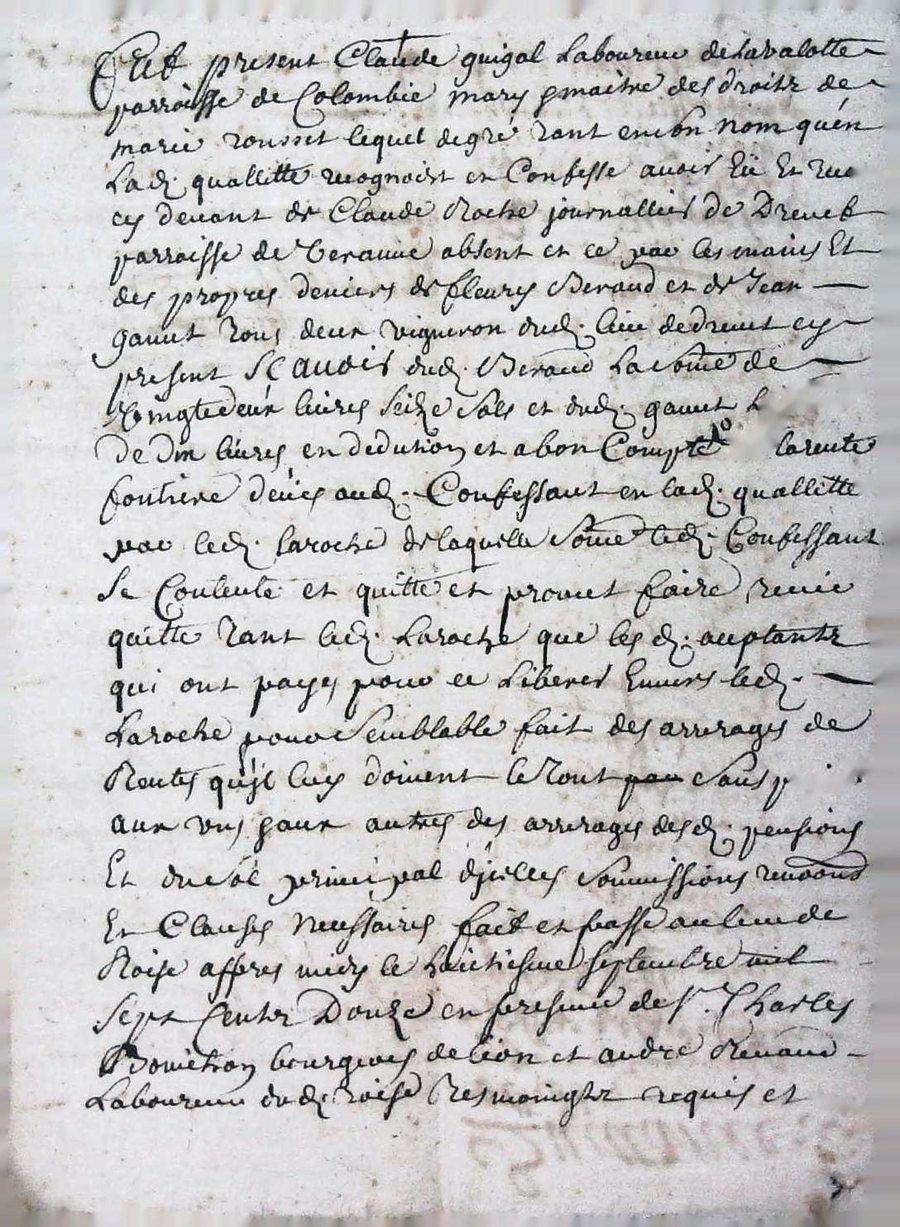 Fut present Claude guigal Laboureur de Lavalotte
parroisse de Colombie mary & maitre des droitz de
marie rousset lequel de gré tant en son nom qu'en
Lad. quallitte recognoist et Confesse avoir Eü Et receu
cy devant de Claude Roche journallier de Drevet
parroisse de Veranne absent et ce par les mains Et
des propres deniers de fleury Beraud et de Jean
ganut tous deux vigneron dud. lieu de drevet cy
present SCavoir dud. Beraud La some de
Vingtedeux livres seize sols et dud. ganut
De dix livres en dedution et a bon Compte la rente
fontiere deues aud. Confessant en lad. quallitte
par led. Laroche de laquelle some led. Confessant
Se Contente et quitte et promet faire tenir
quitte tant led. Laroche que les d. aceptantz
qui ont payés pour ce Liberer Envers led.
Laroche pour semblable fait des arrerages de
Rentes qu'jl luy doivent le tout sans
aux uns aux autres des arrerages desd. pensions
Et du sol principal d'jcelles soumissions renons
Et Clauses necessaires fait et passe au lieu de
Roise appres midy le huictiesme septembre mil
sept Centz Douze en presence de Sr. Charles
bourgeois de lion et andre Renaud
Laboureur dud. roise tesmoingtz requis et